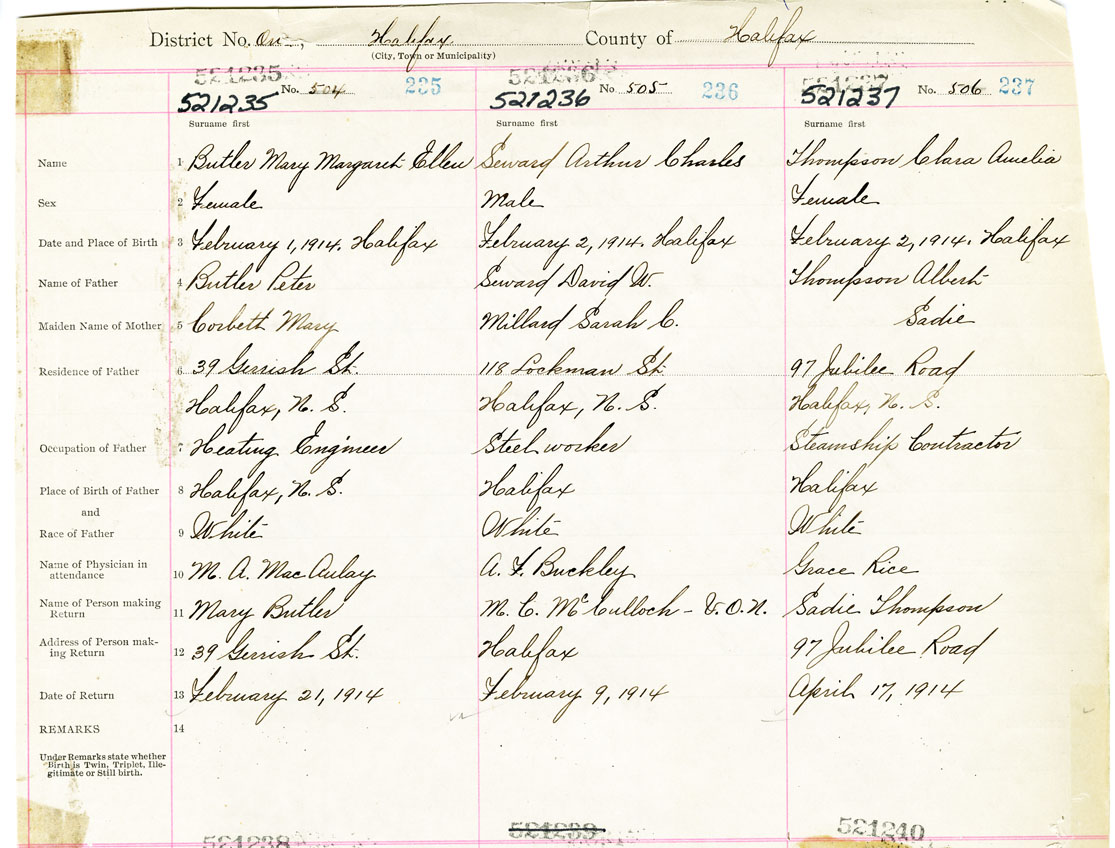 District No. One, Halifax County of Halifax
(City, Town or Municipality)
521235 521236 521237
No. 504 235 No 505 236 No. 506 237
521235 521236 521237
Surname first Surname first Surname first
Name 1 Butler Mary Margaret Ellen Seward Arthur Charles Thompson Clara Amelia
Sex 2 Female Male Female
Date and Place of Birth 3 February 1, 1914, Halifax February 2, 1914, Halifax February 2, 1914, Halifax
Name of Father 4 Butler Peter Seward David W. Thompson Albert
Maiden Name of Mother 5 Corbett Mary Millard Sarah C. Sadie
Residence of Father 6 39 Gerrish St. 118 Lockman St. 97 Jubilee Road
Halifax, N. S. Halifax, N. S. Halifax, N. S.
Occupation of Father 7 Heating Engineer Steel worker Steamship Contractor
Place of Birth of Father 8 Halifax, N. S. Halifax Halifax
and
Race of Father 9 White White White
Name of Physician in
attendance 10 M. A. MacAulay A. F. Buckley Grace Rice
Name of Person making
Return 11 Mary Butler M. C. McCulloch - V. O. N. Sadie Thompson
Address of Person mak-
ing Return 12 39 Gerrish St. Halifax 97 Jubilee Road
Date of Return 13 February 21, 1914 February 9, 1914 April 17, 1914
REMARKS 14
Under Remarks state whether
Birth is Twin, Triplet, Ille-
gitimate or Still birth.
521238 521239 521240